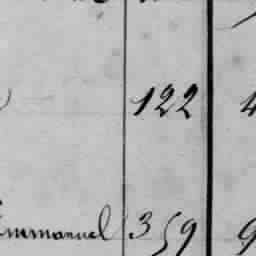 122 4
Emmanuel 359 9